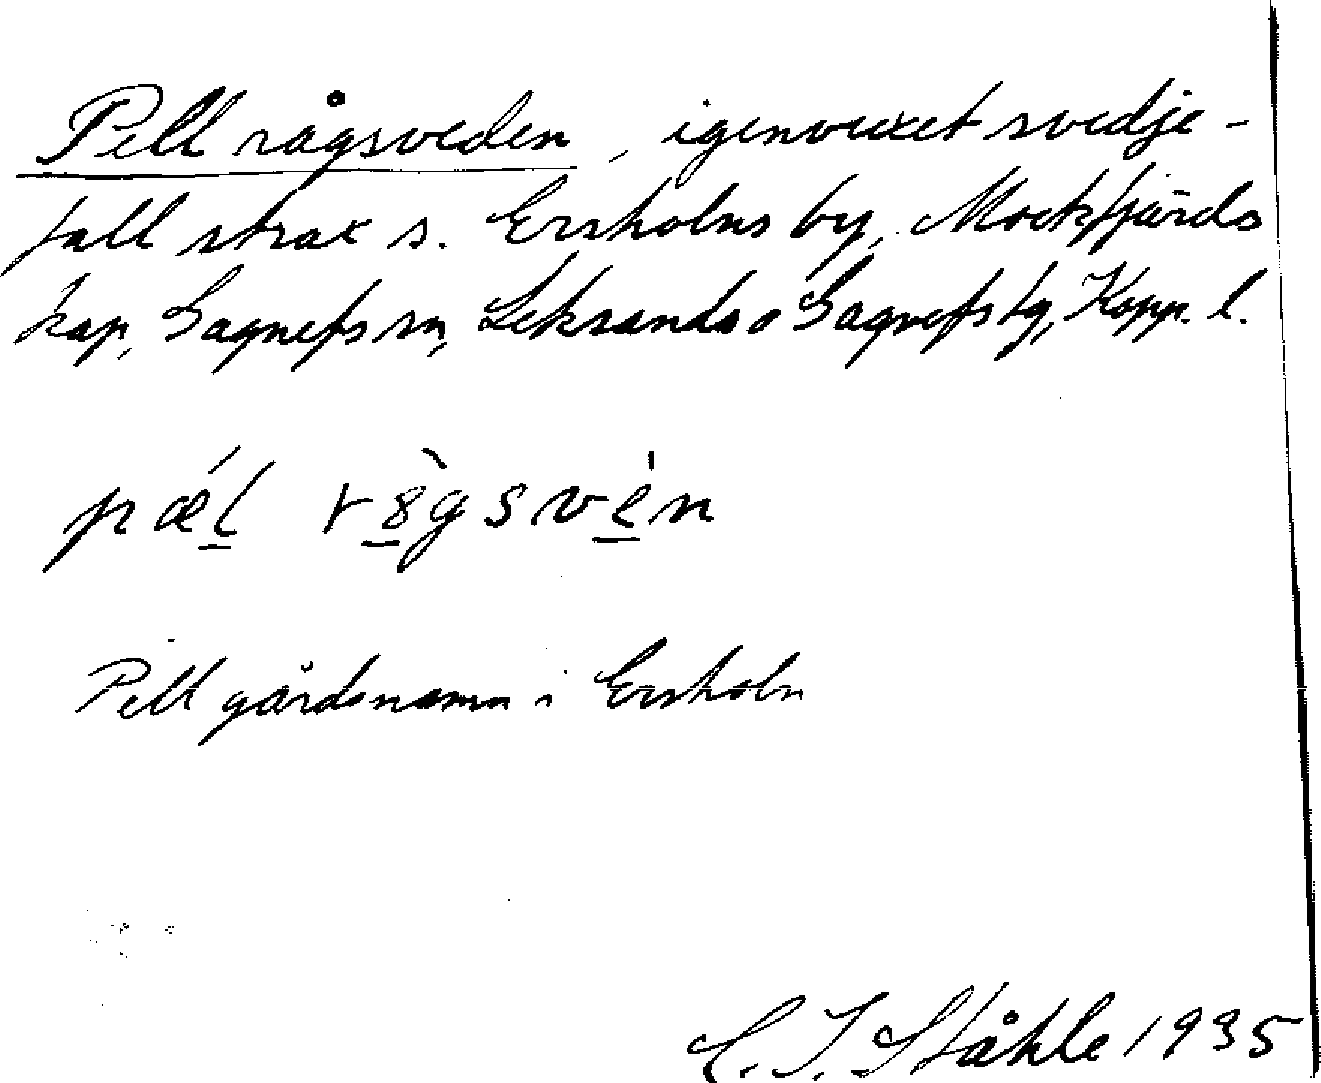 Pell rågsveden, igenvuxet svedje-
fall strax s. Ersholns by, Mockfjärds
kap, Gagnefs sn, Leksands o Gagnefs tg, Kopp. l.
pǽl rȣ̀gsvėn
Pell gårdsnamn i Ersholn
C. I. Ståhle 1935